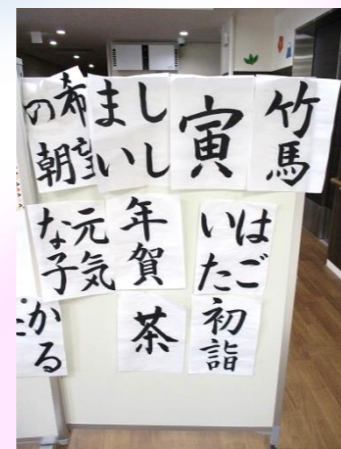 竹馬
寅
しし
まい
希望
の朝
はご
いた
年賀
元気
な子
初詣
茶
かる